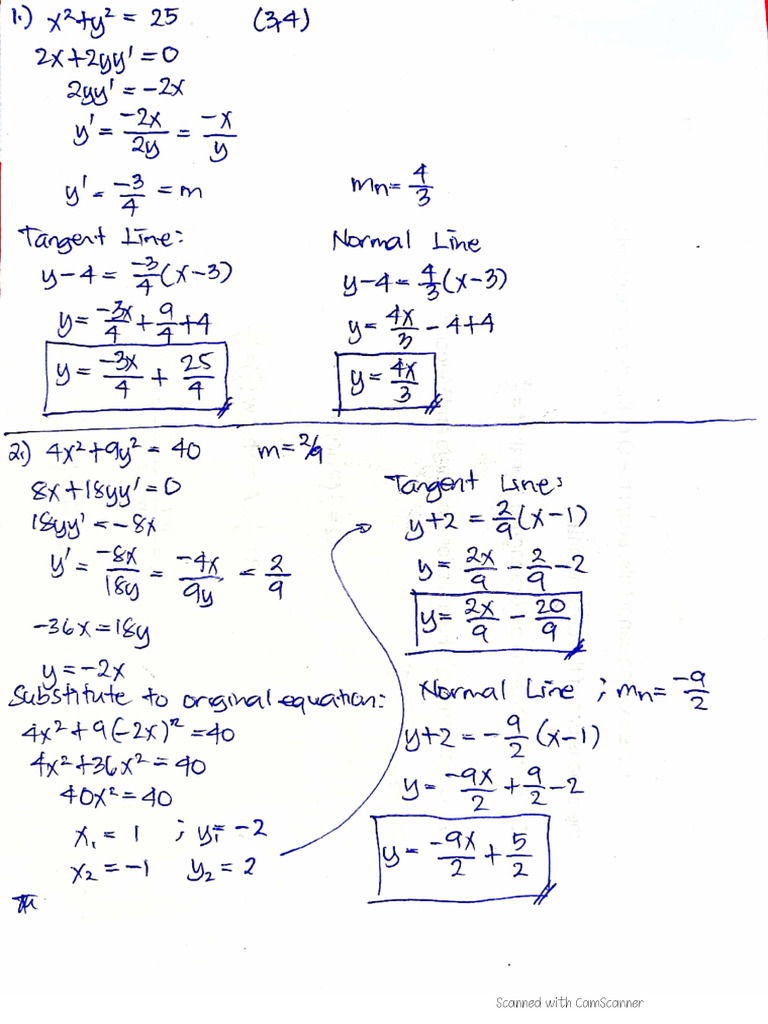 1.) x²+y² = 25 (3,4)
2x+2yy' = 0
2yy' = -2x
y' = -2x/2y = -x/y
y' = -3/4 = m
mn = 4/3
Tangent Line:
y-4 = -3/4(x-3)
y = -3x/4 + 9/4 + 4
y = -3x/4 + 25/4
Normal Line
y-4 = 4/3(x-3)
y = 4x/3 - 4+4
y = 4x/3
2.) 4x²+9y² = 40 m = 2/9
8x+18yy' = 0
18yy' = -8x
y' = -8x/18y = -4x/9y = 2/9
-36x = 18y
y = -2x
Substitute to original equation:
4x²+9(-2x)² = 40
4x²+36x² = 40
40x² = 40
x₁ = 1 ; y₁ = -2
x₂ = -1 y₂ = 2
Tangent Line:
y+2 = 2/9(x-1)
y = 2x/9 - 2/9 - 2
y = 2x/9 - 20/9
Normal Line ; mn = -9/2
y+2 = -9/2(x-1)
y = -9x/2 + 9/2 - 2
y = -9x/2 + 5/2
Scanned with CamScanner